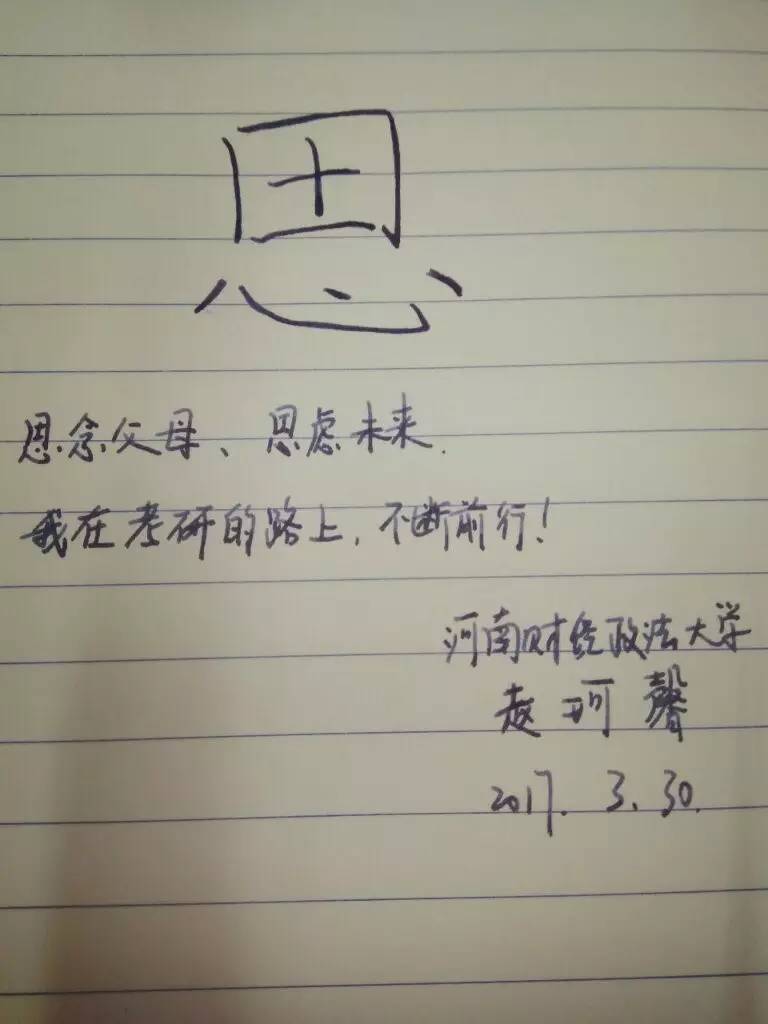 思
思念父母、思虑未来.
我在考研的路上,不断前行!
河南财经政法大学
赵珂馨
2017.3.30.